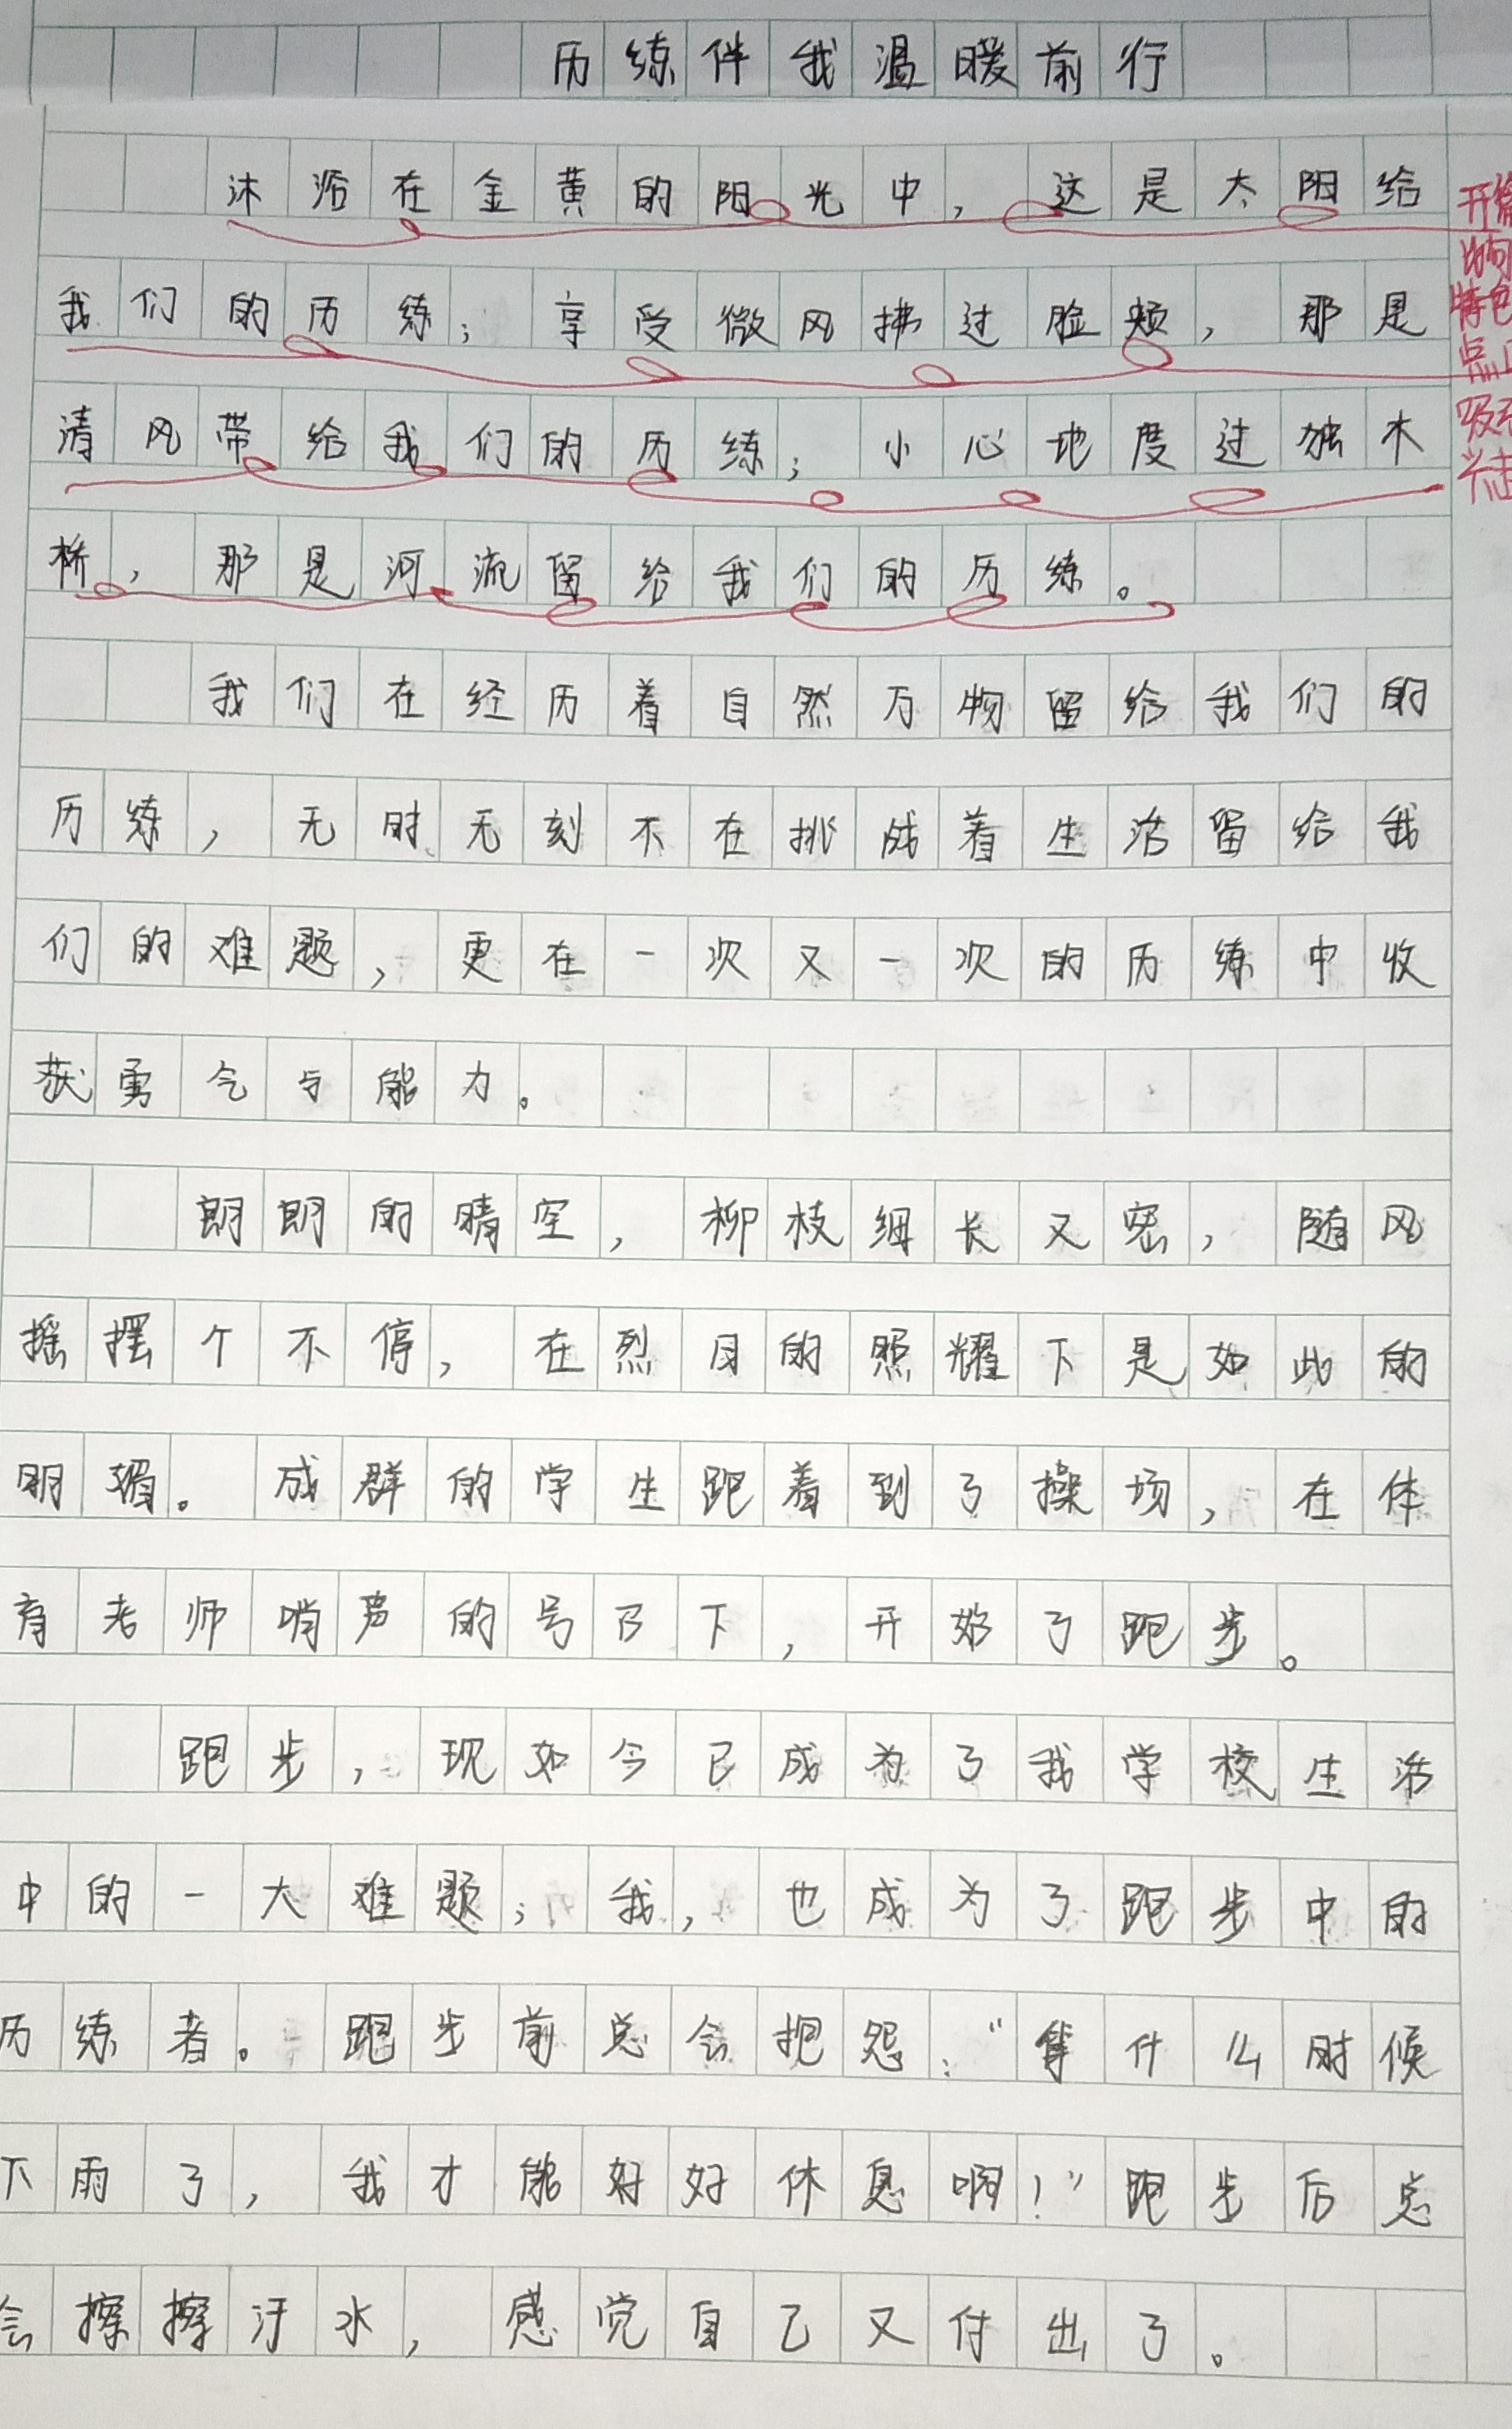 历练伴我温暖前行
沐浴在金黄的阳光中，这是太阳给
我们的历练；享受微风拂过脸颊，那是
清风带给我们的历练；小心地度过独木
桥，那是河流留给我们的历练。
我们在经历着自然万物留给我们的
历练，无时无刻不在挑战着生活留给我
们的难题，更在一次又一次的历练中收
获勇气与能力。
朗朗的晴空，柳枝细长又密，随风
摇摆个不停，在烈日的照耀下是如此的
明媚。成群的学生跑着到了操场，在体
育老师哨声的号召下，开始了跑步。
跑步，现如今已成为了我学校生活
中的一大难题；我，也成为了跑步中的
历练者。跑步前总会抱怨：“等什么时候
下雨了，我才能好好休息啊！”跑步后总
会擦擦汗水，感觉自己又付出了。
开篇
排句
特色
点
吸